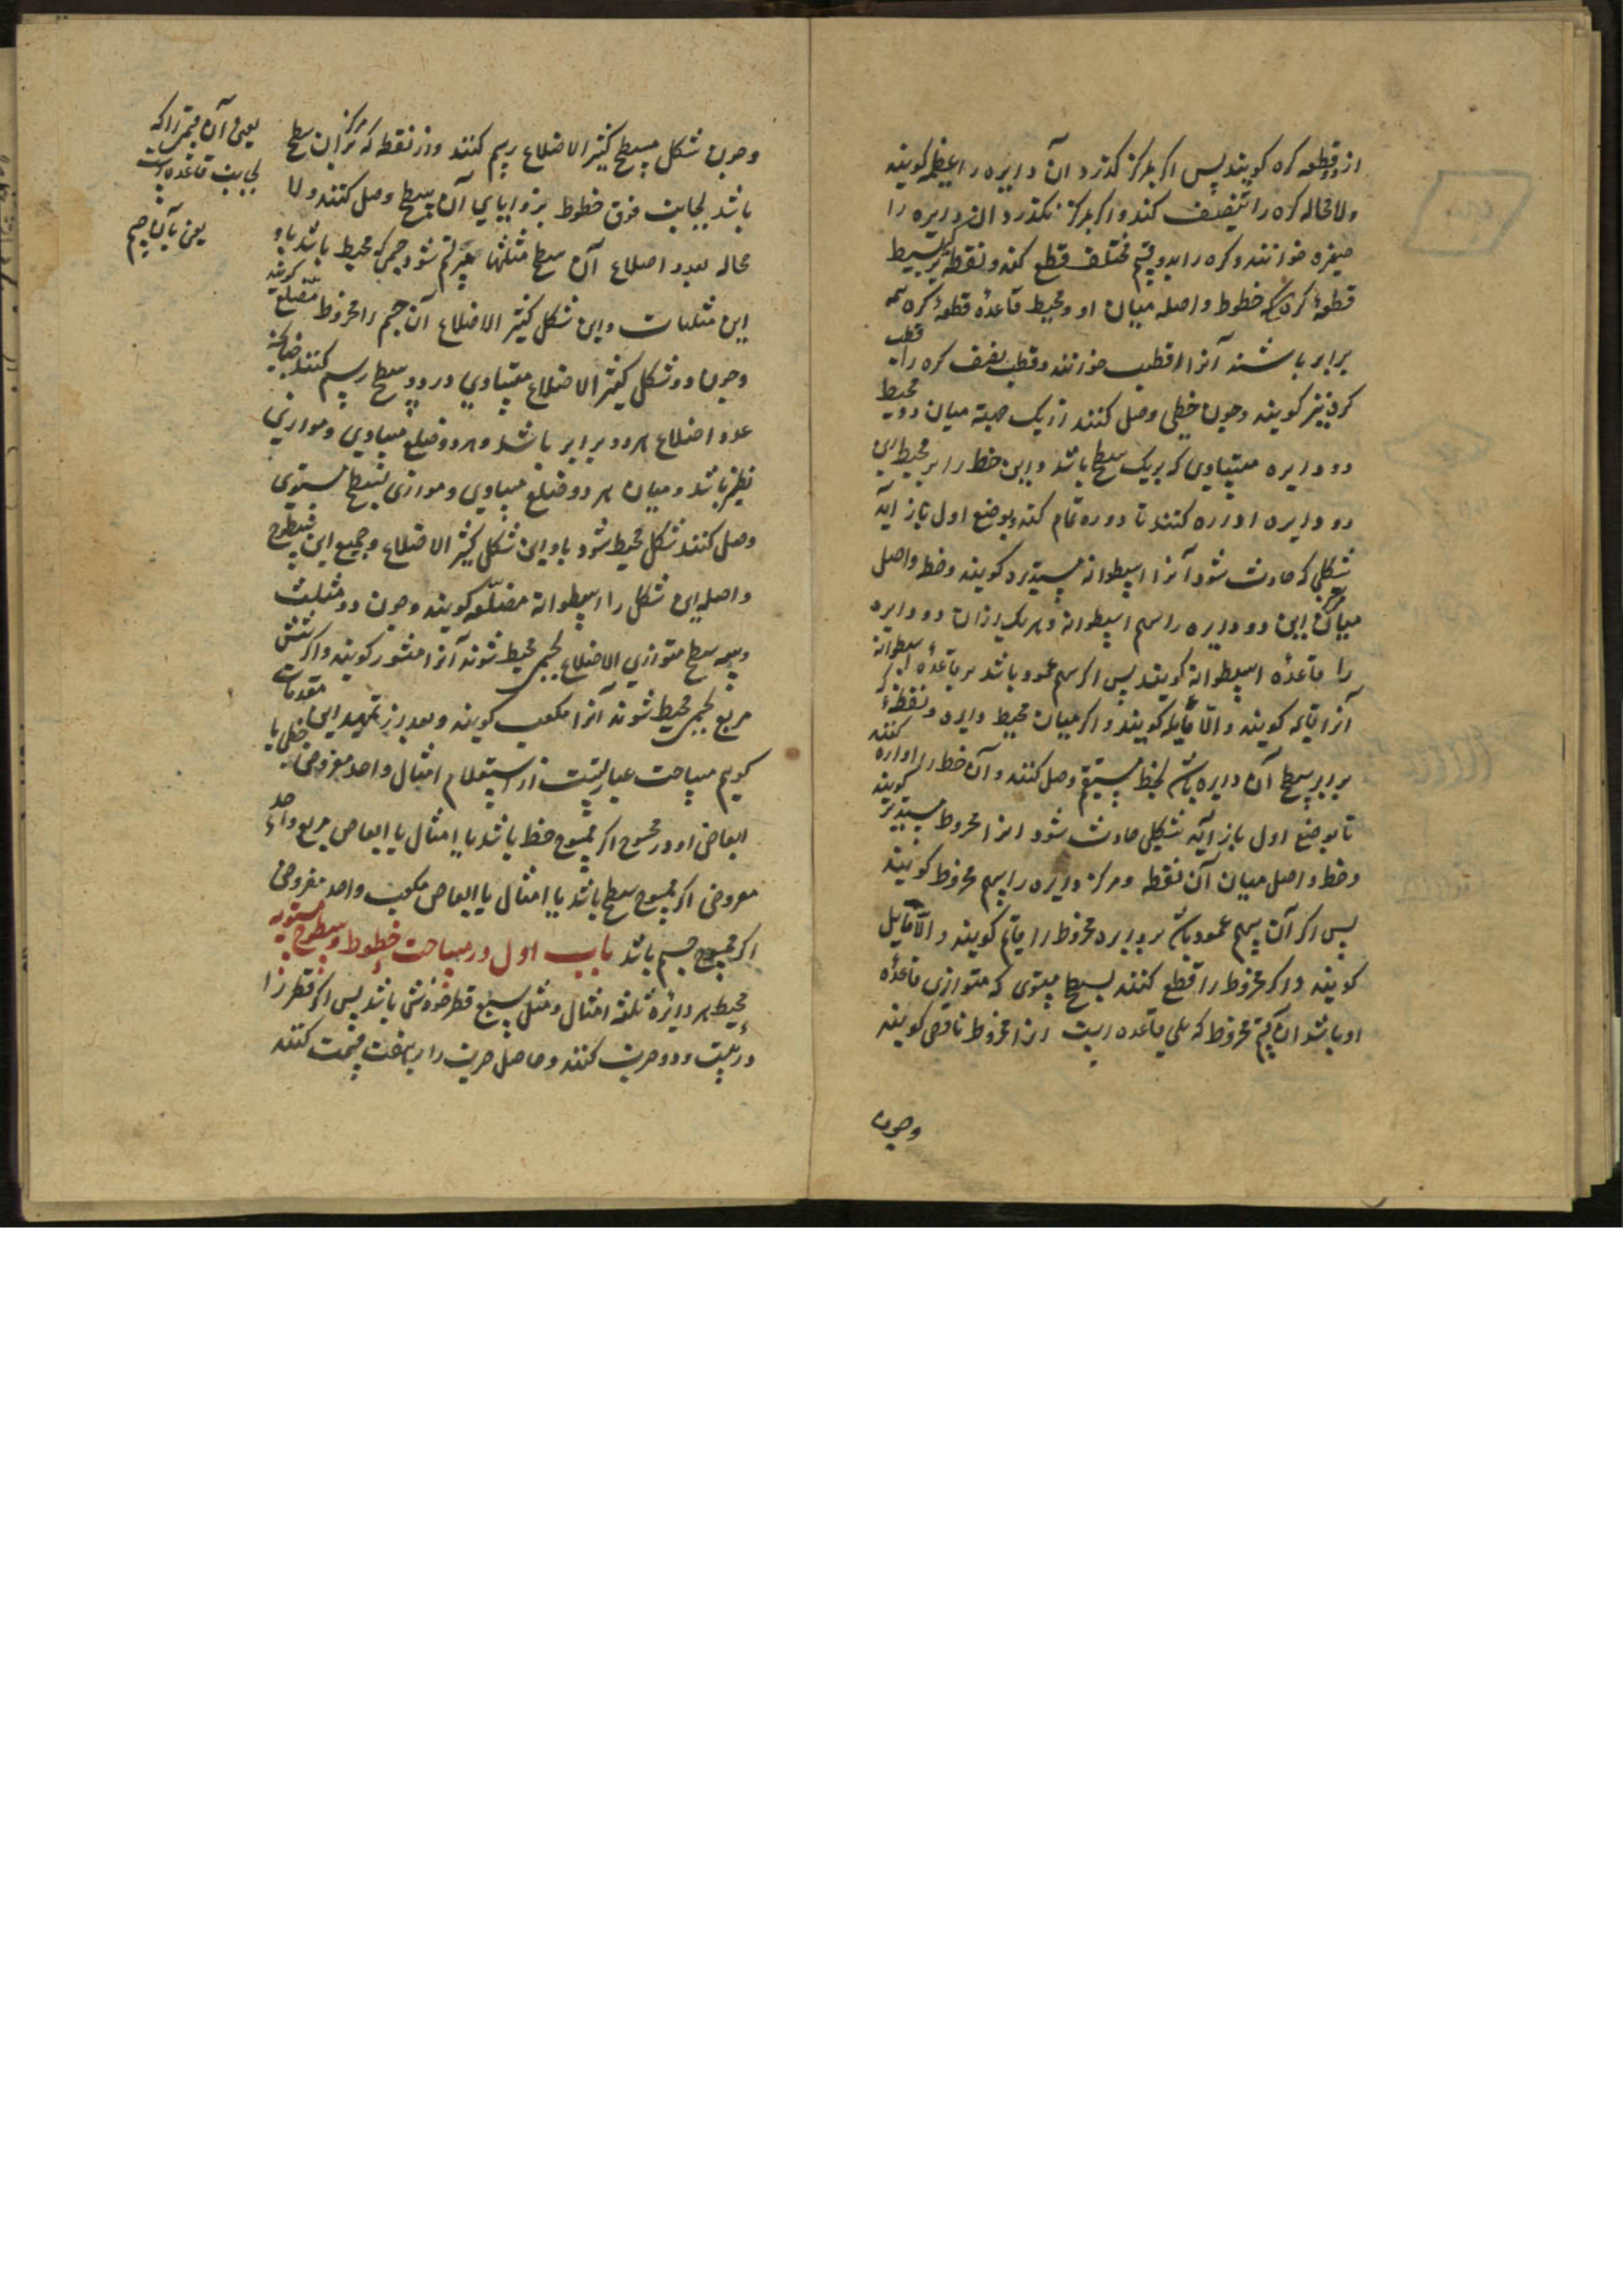 ازو قطعه کره کویند پس اکر بمرکز کذرد آن دایره را عظیمه کویند
ولا محاله کره را تنصیف کند و اکر بمرکز نکذرد آن دایره را
صغیره خوانند و کره را بدو قسم مختلف قطع کند و نقطه که بر بسیط
قطعهٔ کره که خطوط واصله میان او و محیط قاعدهٔ قطعهٔ کره همه
برابر باشند آنرا قطب خوانند و قطب نصف کره را قطب
کره نیز کویند و چون خطی وصل کنند از یک جهة میان دو محیط
دو دایره متساوی که بر یک سطح باشد و این خط را بر محیط این
دو دایره اداره کنند تا دوره تمام کند و بوضع اول باز آید
شکلی که حادث شود آنرا اسطوانه مستدیره کویند و خط واصل
میان مرکز این دو دایره را سهم اسطوانه و هر یک ازان دو دایره
را قاعدهٔ اسطوانه کویند پس اکر سهم عمود باشد بر قاعدهٔ اسطوانه
آنرا قایمه کویند و الّا مایله کویند و اکر میان محیط دایره و نقطهٔ که
برابر سطح آن دایره باشد بخط مستقیم وصل کنند و آن خط را اداره کنند
تا بوضع اول باز آید شکلی حادث شود انرا مخروط مستدیر کویند
و خط واصل میان آن نقطه و مرکز دایره را سهم مخروط کویند
پس اکر آن سهم عمود باشد بر دایره مخروط را قایم کویند و الّا مایل
کویند و اکر مخروط را قطع کنند بسطح مستوی که متوازی قاعدهٔ
او باشد آن قسم مخروط که یلی قاعده است انرا مخروط ناقص کویند
وچون
وچون شکل مسطح کثیر الاضلاع رسم کنند و از نقطه که مرکز آن سطح
باشد بجانب فوق خطوط بزوایای آن سطح وصل کنند ولا
محاله بعدد اضلاع آن سطح مثلثها مرتسم شود جسمی که محیط باشد باو
این مثلثات و این شکل کثیر الاضلاع آن جسم را مخروط مضلع کویند
وچون دو شکل کثیر الاضلاع متساوی در دو سطح رسم کنند چنانکه
عدد اضلاع هر دو برابر باشد و هر دو ضلع متساوی و موازی
نظیر باشد و میان هر دو ضلع متساوی و موازی بسطح مستوی
وصل کنند شکل محیط شود باو این شکل کثیر الاضلاع و جمیع این سطوح
واصله این شکل را اسطوانه مضلّعه کویند و چون دو مثلث
و سه سطح متوازی الاضلاع بجسمی محیط شوند آنرا منشور کویند و اکر شش
مربع بجسمی محیط شوند آنرا مکعب کویند و بعد از تمهید این مقدمات
کویم مساحت عبارتست از استعلام امثال واحد مفروض خطی یا
ابعاض او در ممسوح اکر ممسوح خط باشد یا امثال یا ابعاض مربع واحد
مفروض اکر ممسوح سطح باشد یا امثال یا ابعاض مکعب واحد مفروض
اکر ممسوح جسم باشد باب اول در مساحت خطوط و سطوح مستویه
محیط هر دایرهٔ ثلثه امثال و مثل سبع قطر خودش باشد پس اکر قطر را
در بیست و دو ضرب کنند و حاصل ضرب را بر هفت قسمت کنند
یعنی آن قسم را که
بجانب قاعده است
یعنی بآن جسم